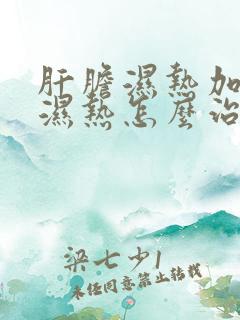 肝膽濕熱加
濕熱怎麼治
梁七少1
未任同意禁止轉載